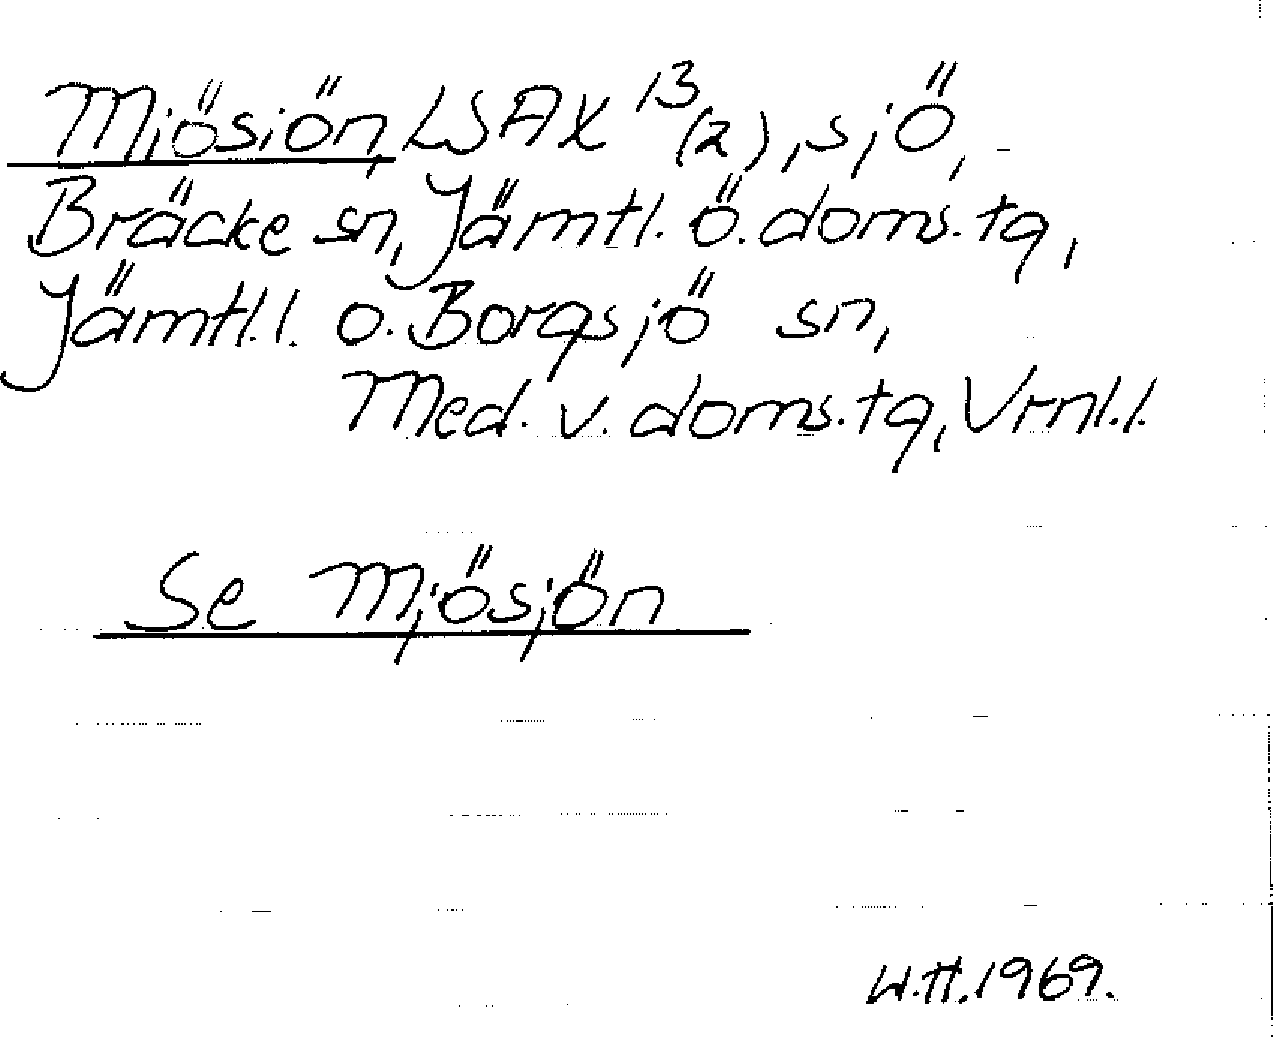 Mjösiön, LSA X 13 (2), sjö,
Bräcke sn, Jämtl. ö. doms. tg,
Jämtl. l. o. Borgsjö sn,
Med. v. doms. tg, Vrnl. l.
Se Mjösjön
1969.